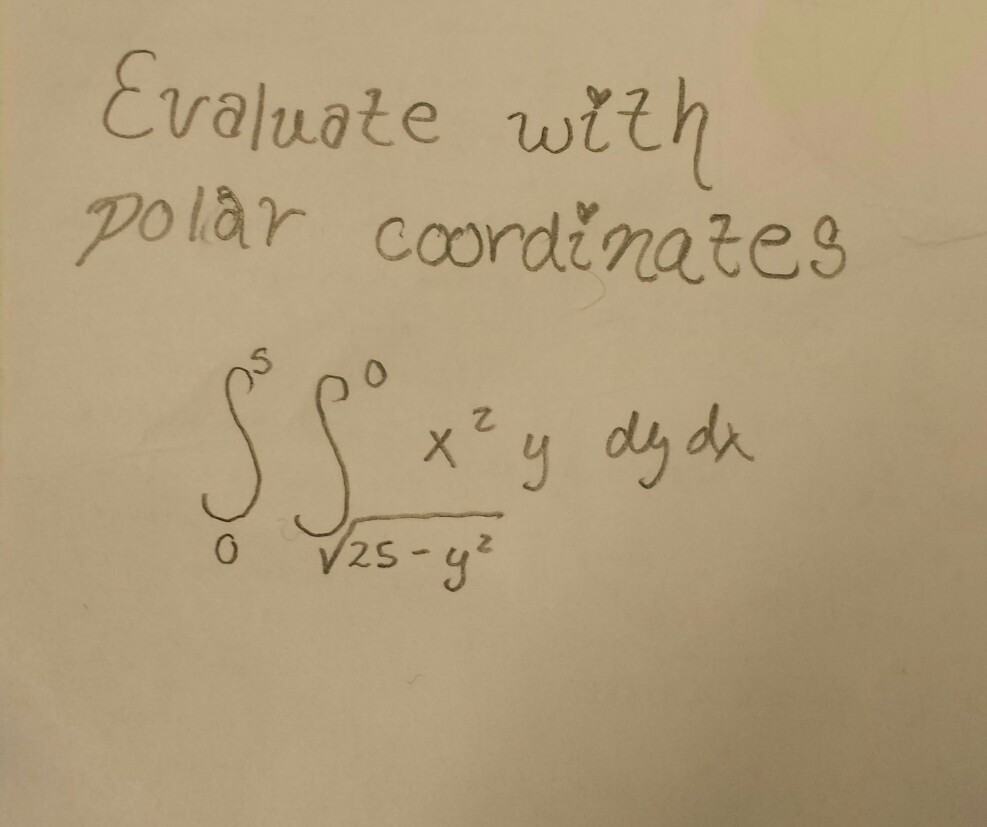 Evaluate with
polar coordinates
∫₀⁵ ∫_{√(25-y²)}^{0} x² y dy dx